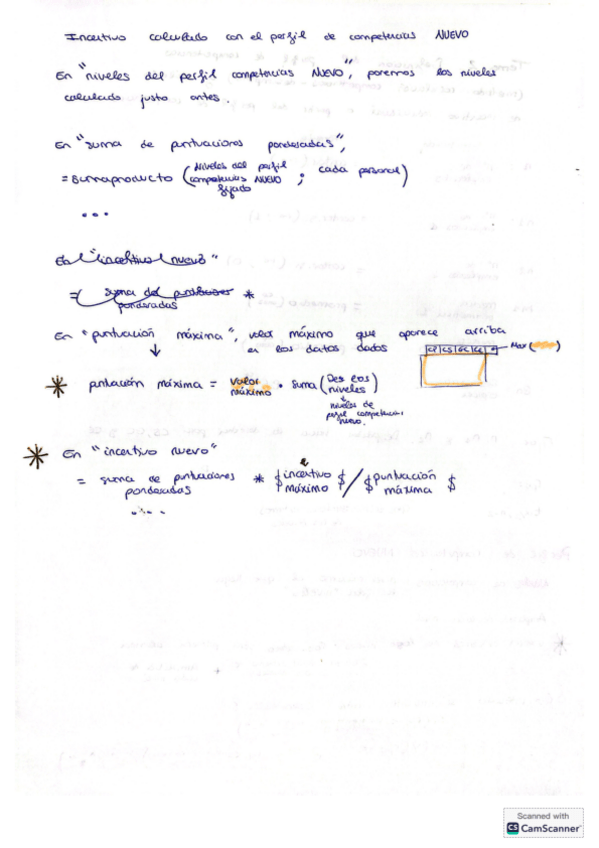 Incentivo calculado con el perfil de competencias NUEVO
En "niveles del perfil competencias NUEVO", ponemos los niveles
calculado justo antes.
En "suma de puntuaciones ponderadas",
= sumaproducto (Niveles del perfil competencias NUEVO fijado ; cada personal)
...
En "incentivo nuevo"
= (suma del puntuaciones ponderadas *
En "puntuación máxima", valor máximo que aparece arriba
en los datos dados
CP CS CC CL → Max ( )
* puntuación máxima = valor máximo · suma (Des los niveles)
niveles de
perfil competencias
nuevo.
* En "incentivo nuevo"
= suma de puntuaciones ponderadas * $ incentivo máximo $ / $ puntuación máxima $
.....
Scanned with
CS CamScanner